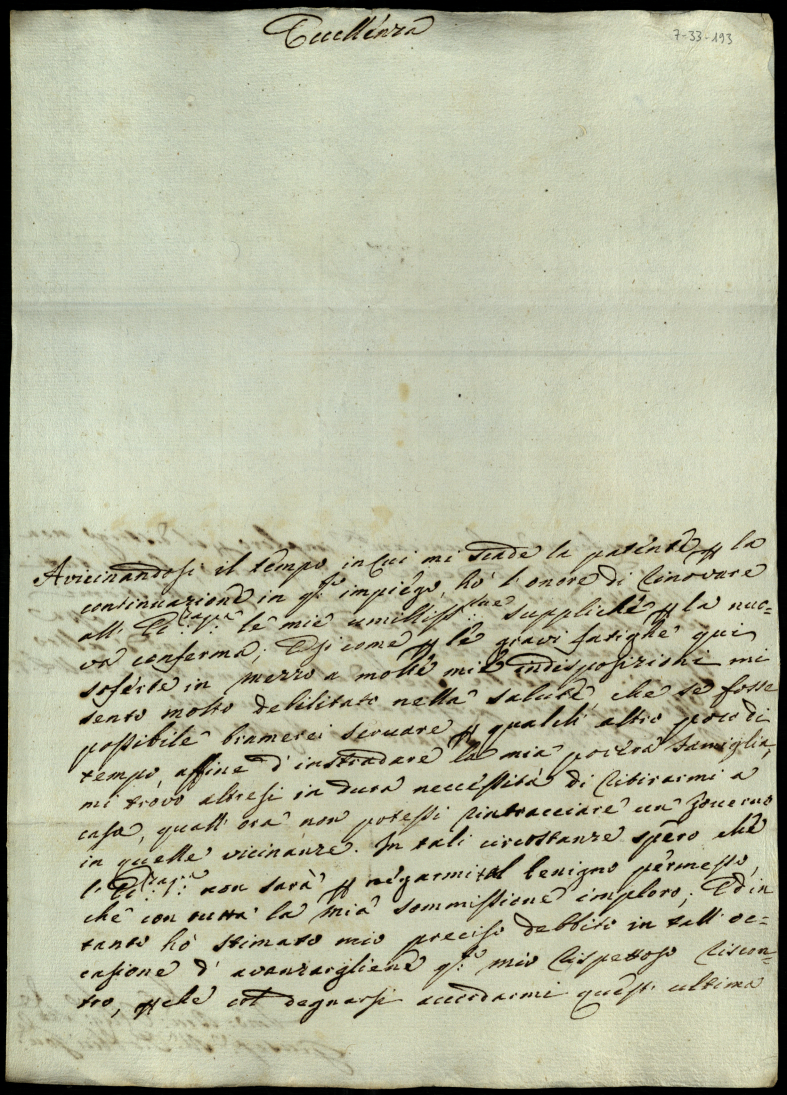 Eccellenza
7-33-193
Avicinandosi il tempo, in cui mi scade la patente p la
continuazione in qto impiego, hò l'onore di rinovare
all' Ecc.za V.ra le mie umilissime suppliche p la nuo=
va conferma; E siccome p le gravi fatighe qui
soferte in mezzo a molte mie indisposizioni mi
sento molto debilitato nella salute, che se fosse
possibile bramerei servare p qualch' altro poco di
tempo, affine d' instradare la mia povera Famiglia,
mi trovo altresi in dura neccessità di ritirarmi a
casa, quall' ora non potessi rintracciare un Governo
in quelle vicinanze. In tali circostanze spero che
l' Ecc.za V.ra non sarà p negarmi tal benigno permesso,
che con tutta la mia sommissione imploro; Ed in
tanto hò stimato mio preciso debbito in tall' oc=
casione d' avanzargliene qto mio rispettoso riscon=
tro, p che col degnarsi accordarmi quest' ultima